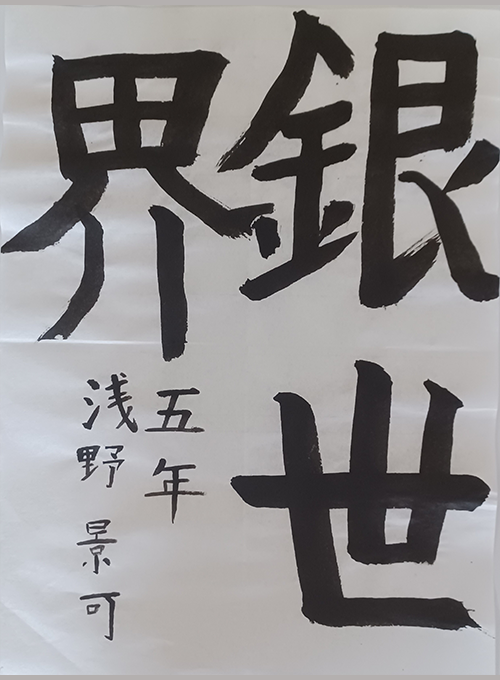 銀世
界
五年
浅野 景可